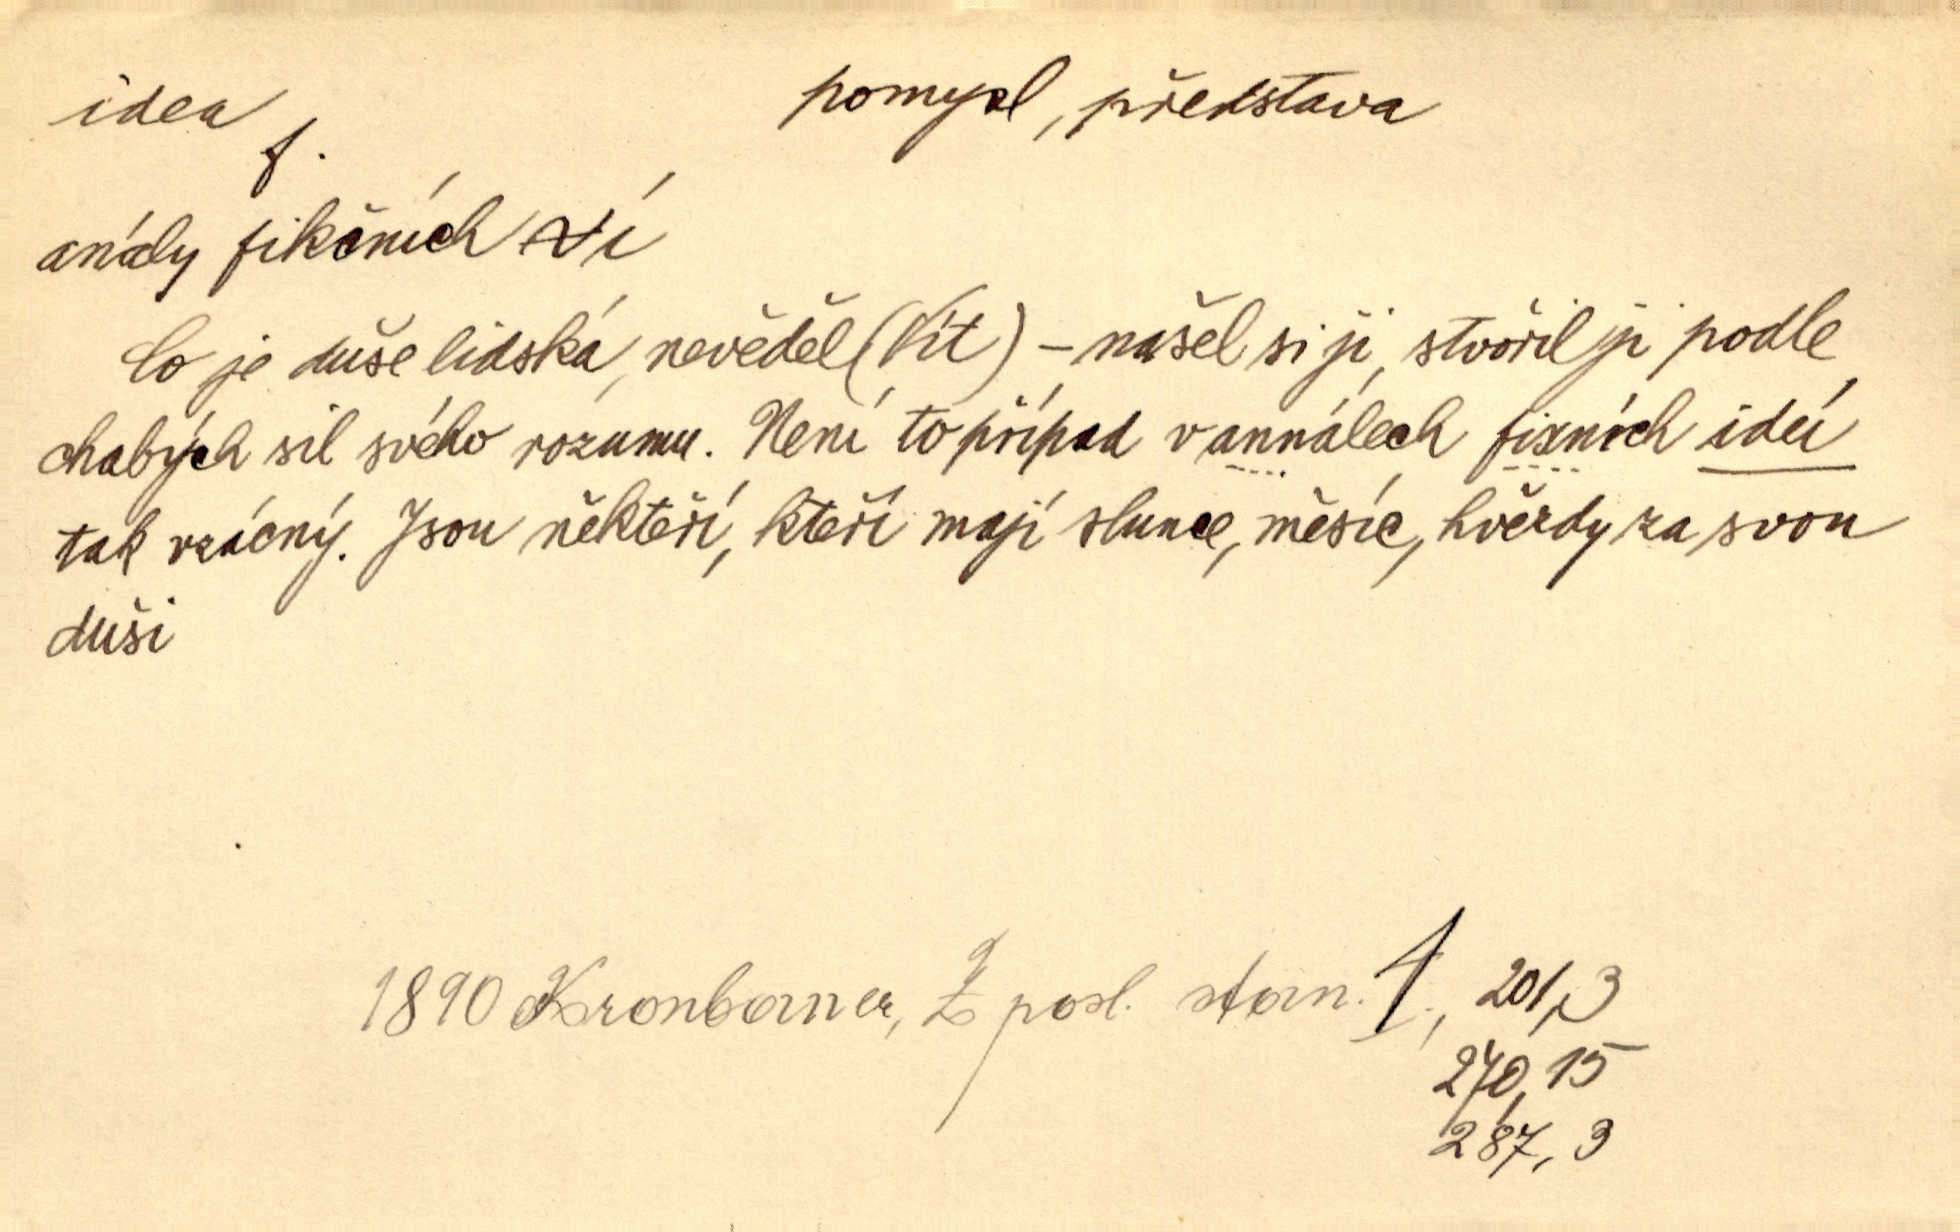 idea f. pomysl, představa
anály fikčních ~í
Co je duše lidská, nevěděl (Vít) – našel si ji, stvořil ji podle
chabých sil svého rozumu. Není to případ v annálech fixních ideí
tak vzácný. Jsou někteří, kteří mají slunce, měsíc, hvězdy za svou
duši
1890 Kronbauer, Z posl. stan. I., 201,3
270,15
287,3